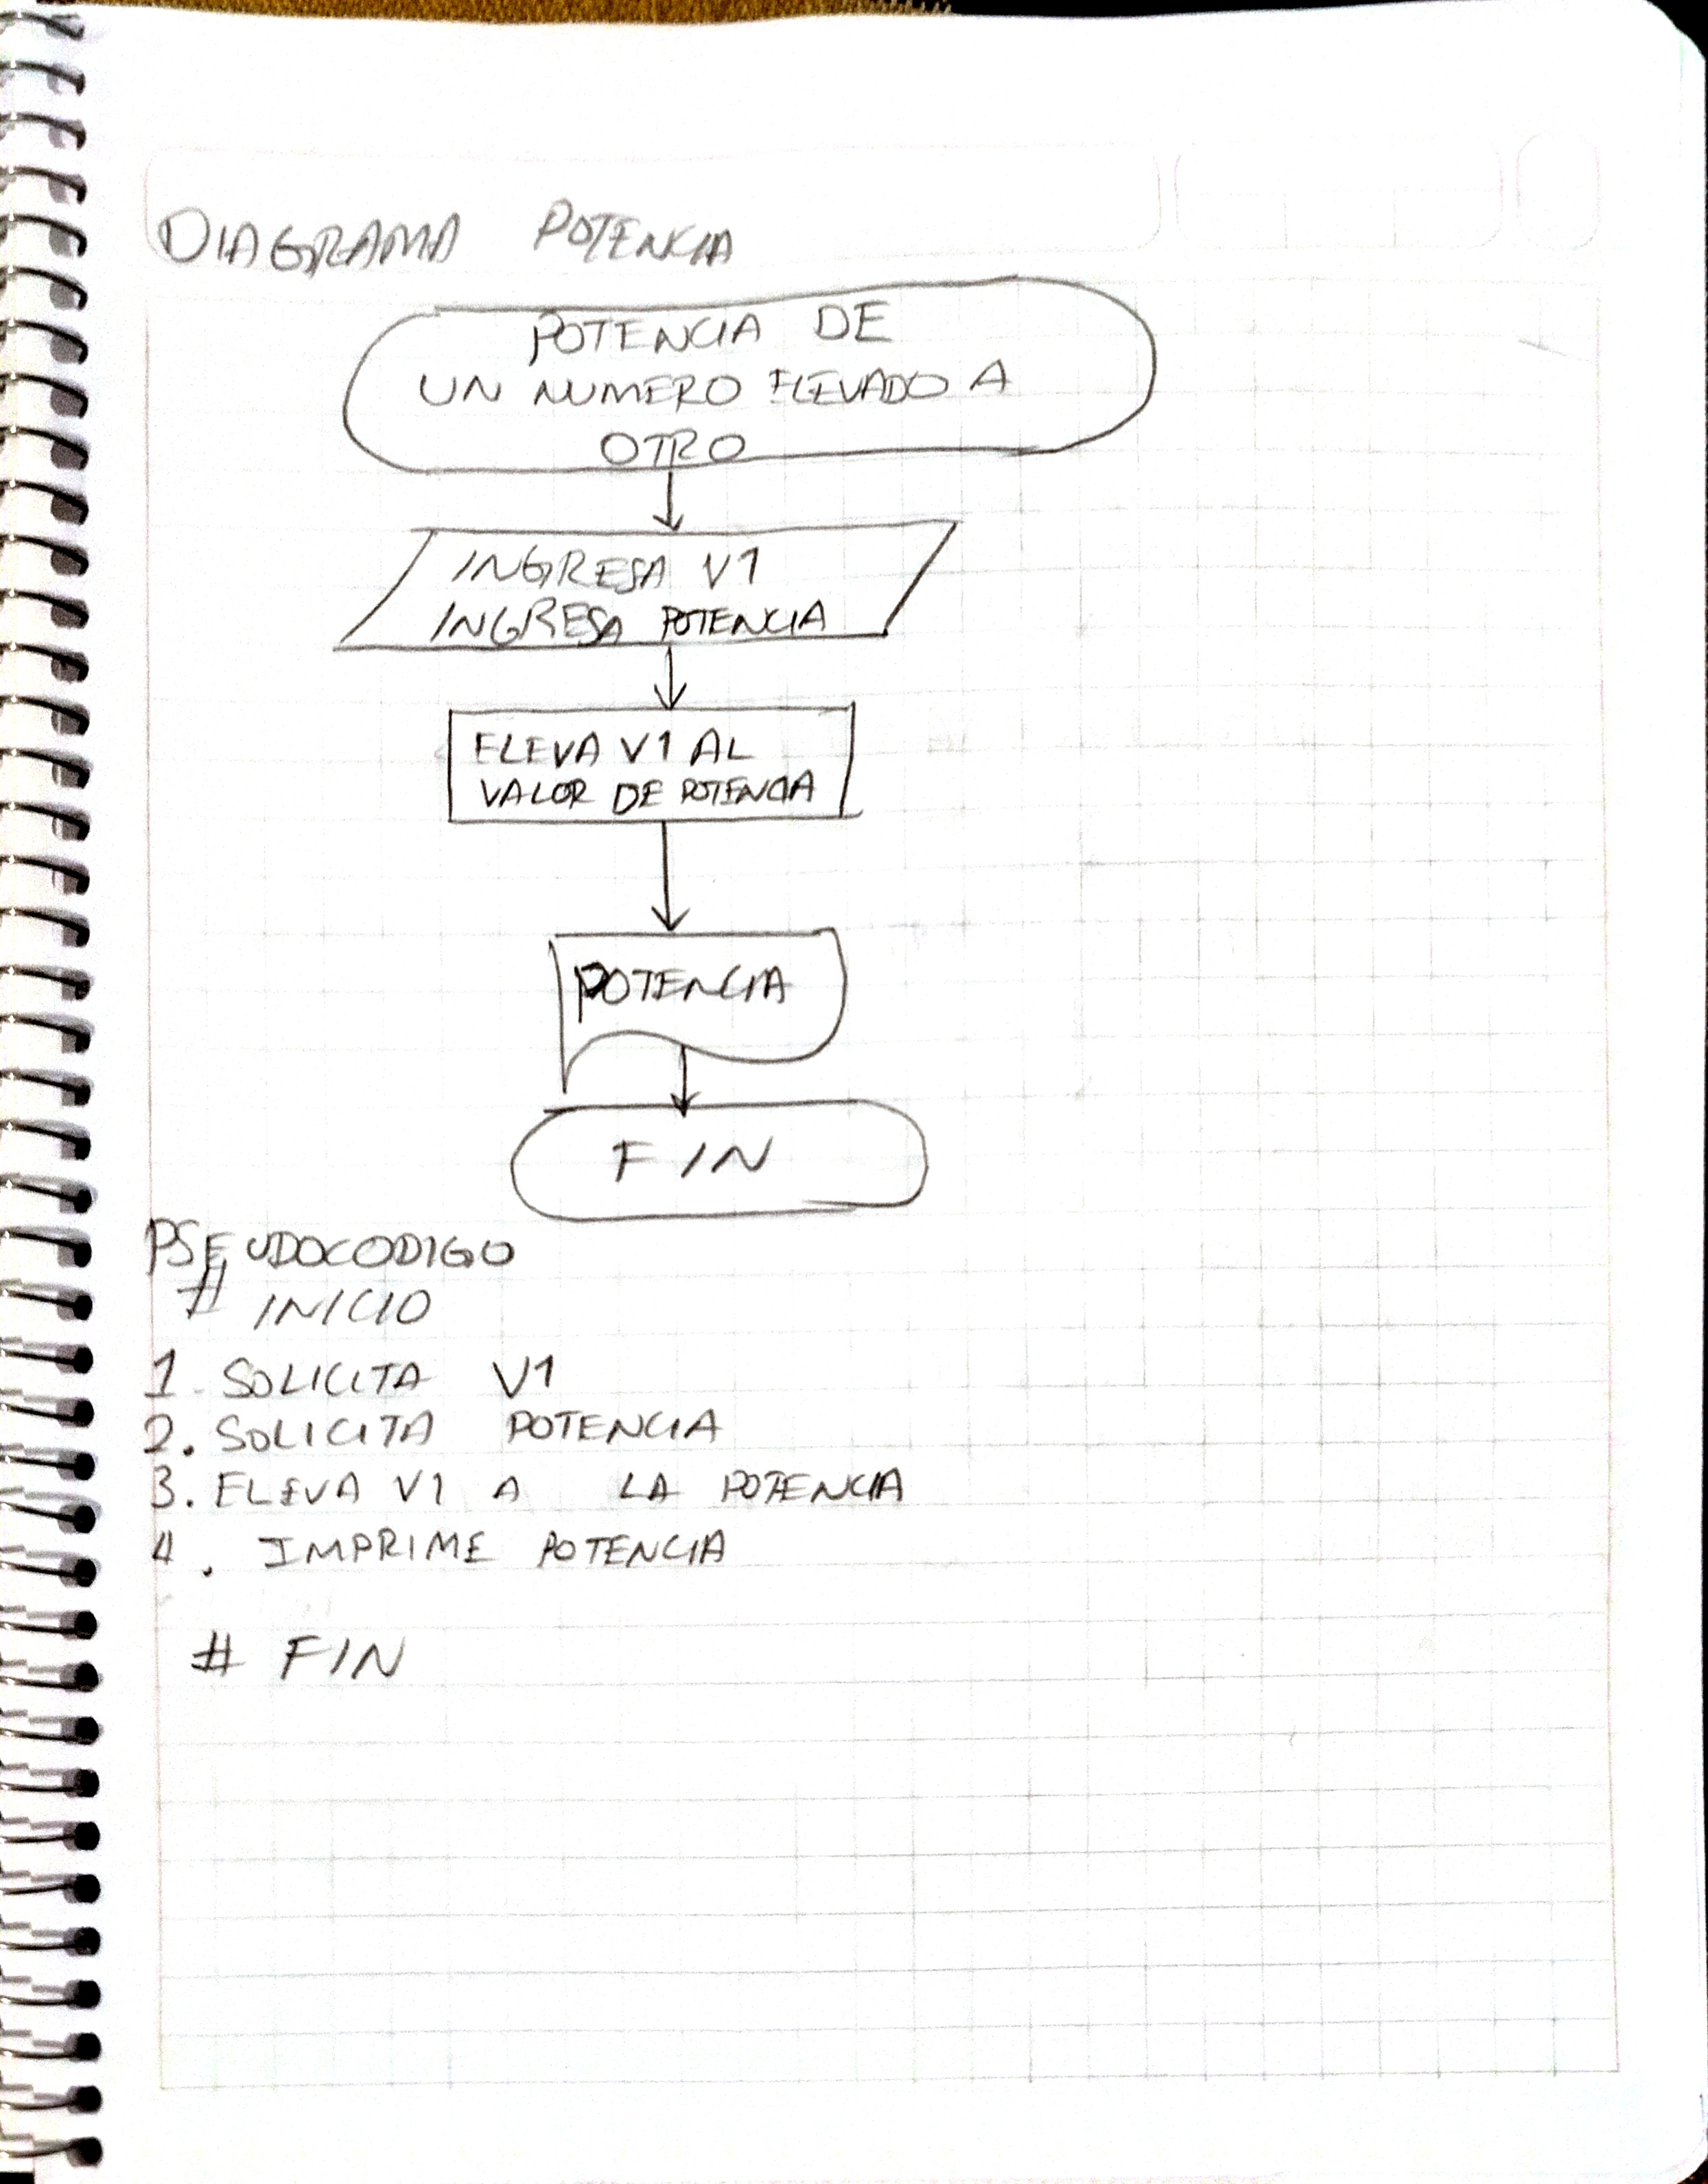 DIAGRAMA POTENCIA
POTENCIA DE
UN NUMERO ELEVADO A
OTRO
INGRESA V1
INGRESA POTENCIA
ELEVA V1 AL
VALOR DE POTENCIA
POTENCIA
FIN
PSEUDOCODIGO
# INICIO
1. SOLICITA V1
2. SOLICITA POTENCIA
3. ELEVA V1 A LA POTENCIA
4. IMPRIME POTENCIA
# FIN